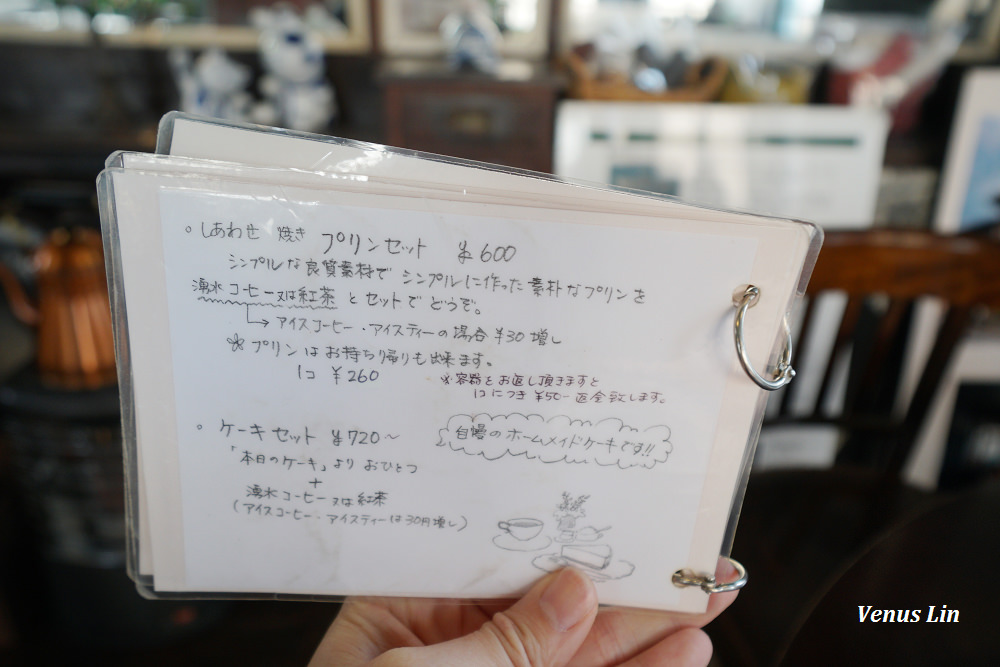 。しあわせ 焼き プリンセット ¥600
シンプルな良質素材で シンプルに作った素朴なプリンを
湧水コーヒー又は紅茶 とセットでどうぞ。
→アイスコーヒー・アイスティーの場合 ¥30増し
プリンはお持ち帰りも出来ます。
1コ ¥260
※容器をお返し頂きますと
1コにつき ¥50-返金致します。
。ケーキセット ¥720〜
自慢のホームメイドケーキです!!
「本日のケーキ」より おひとつ
+
湧水コーヒー又は紅茶
(アイスコーヒー・アイスティーは30円増し)
Venus Lin